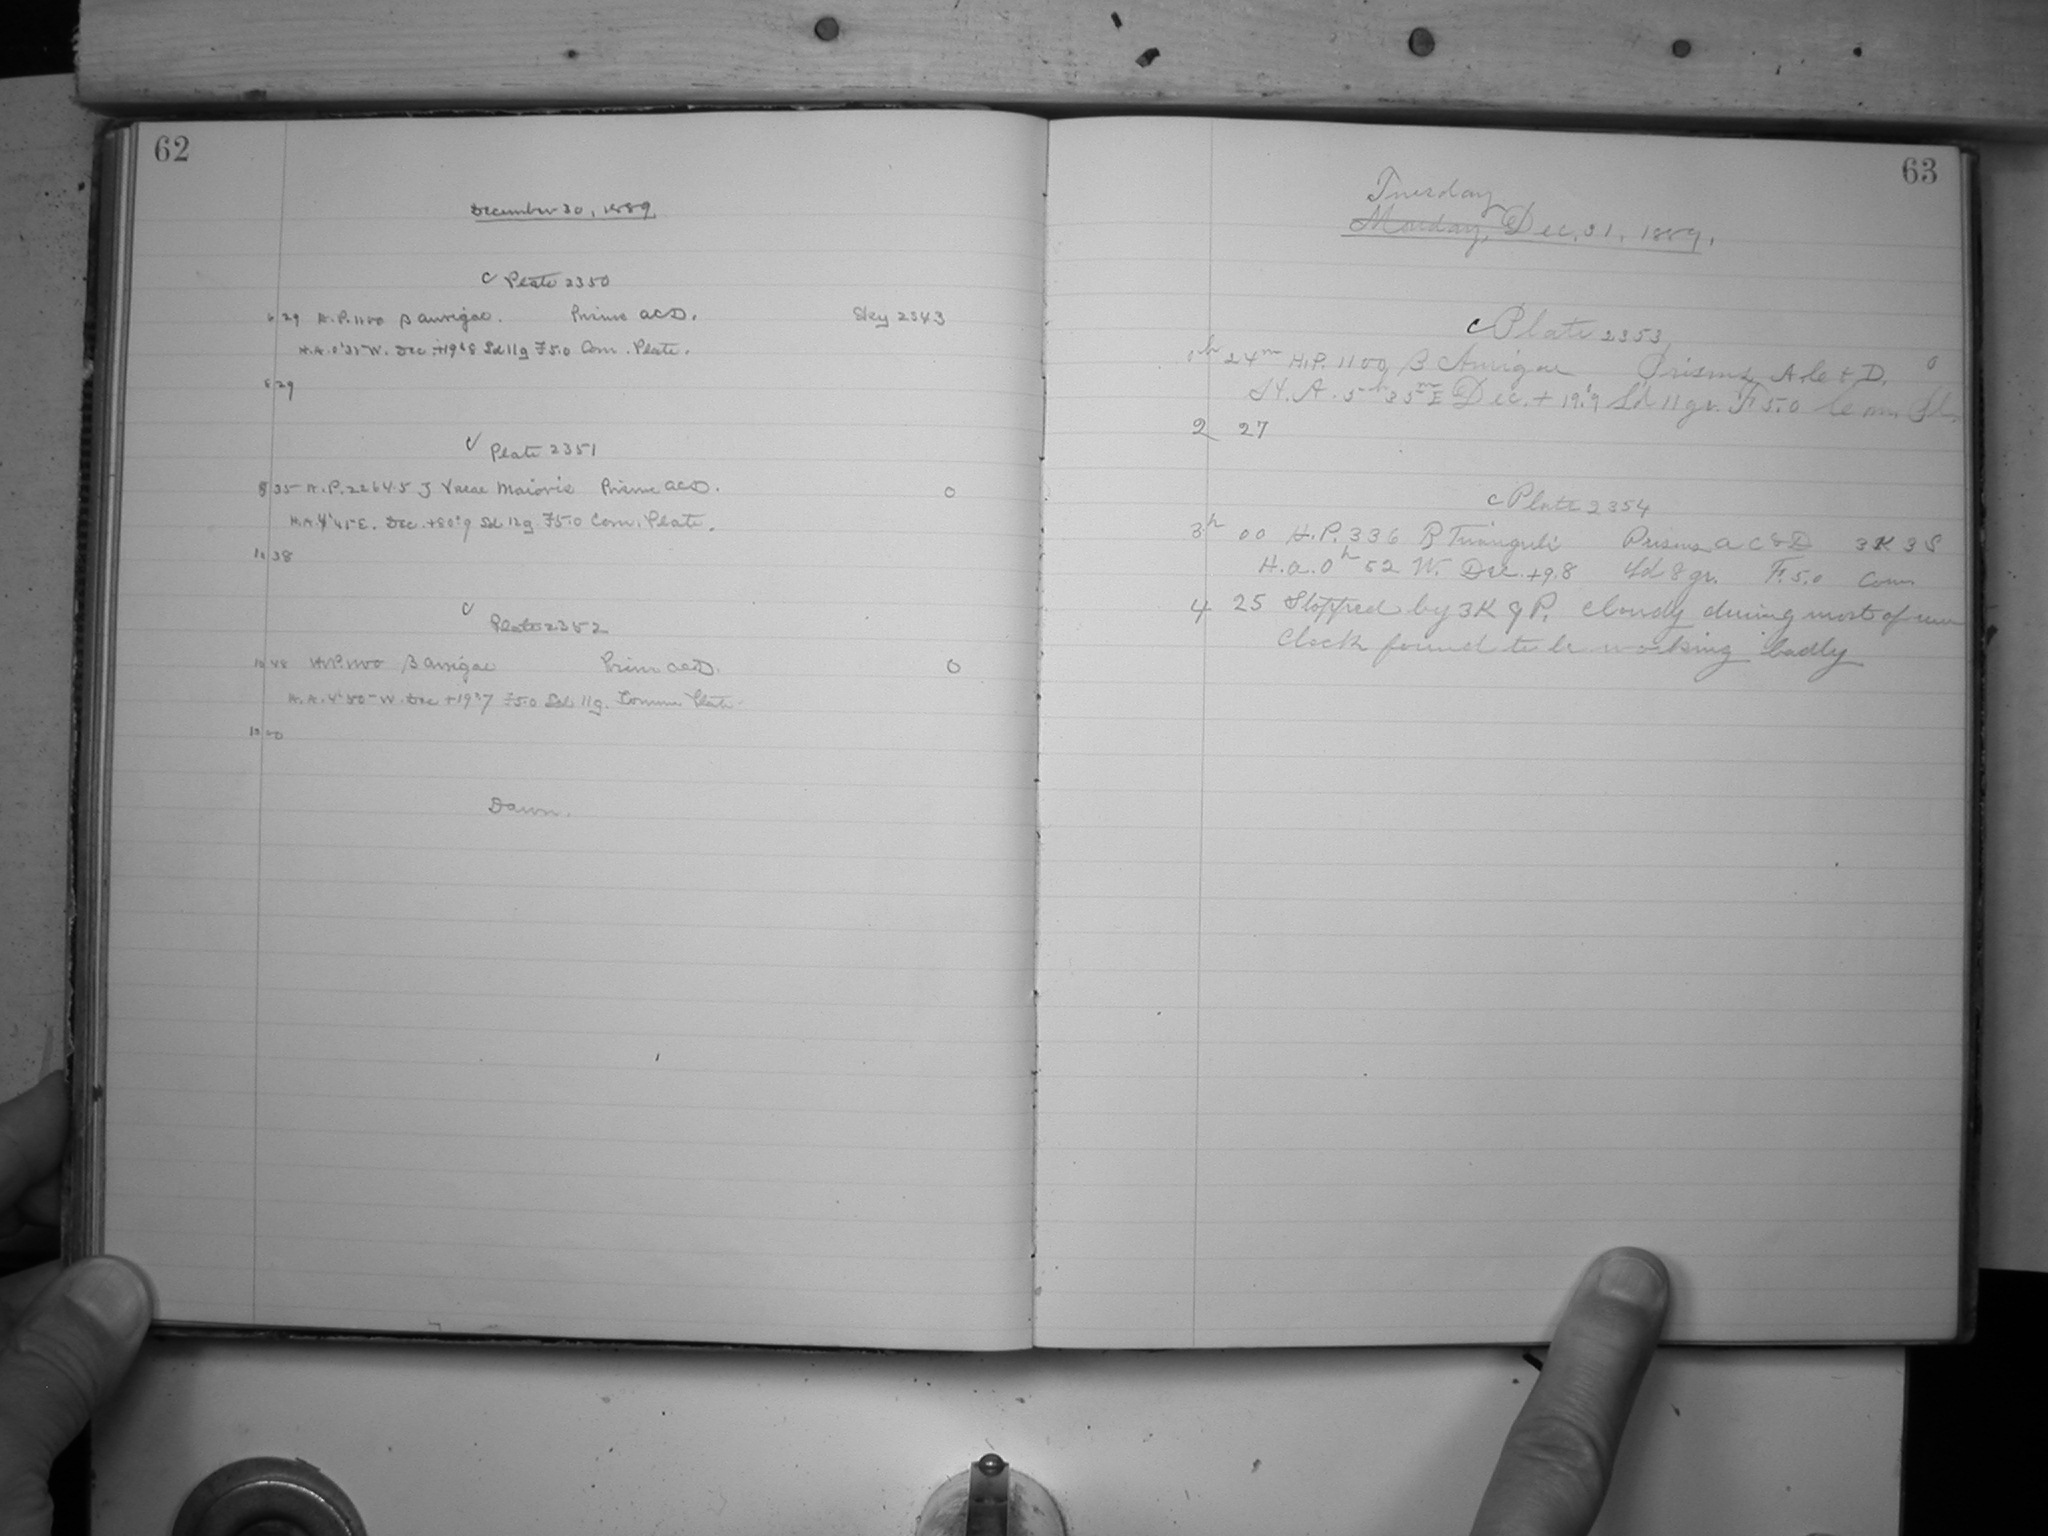 62
December 30, 1889.
c Plate 2350
6 29 H.P. 1100 β Aurigae. Prisms ACD. Sky 2343
H.A. 0h 35 W. Dec. +19°.8 Sd 11g F5.0 Com. Plate.
8 29
c Plate 2351
8 35 H.P. 2264.5 ζ Ursae Maioris Prisms ACD. 0
H.A. 4h 45 E. Dec. +80°.9 Sd 12g F5.0 Com. Plate.
10 38
c Plate 2352
10 48 H.P. 1100 β Aurigae Prisms ACD. 0
H.A. 4h 50 W. Dec +19°.7 F5.0 Sd 11g. Common Plate
Dawn.
63
Tuesday
Monday, Dec. 31, 1889.
c Plate 2353,
24m H.P. 1100, β Aurigae Prisms, A, C & D. 0
H. A. 5h 35m E Dec. + 19°.9 Sd 11 gr. F 5.0 Com. Pl.
2 27
c Plate 2354
3h 00 H.P. 336 β Trianguli Prisms A C & D 3K 3S
H.a. 0h 52 W. Dec. +9.8 Sd 8 gr. F. 5.0 Com
4 25 Stopped by 3K & P. cloudy during most of run
Clock found to be working badly